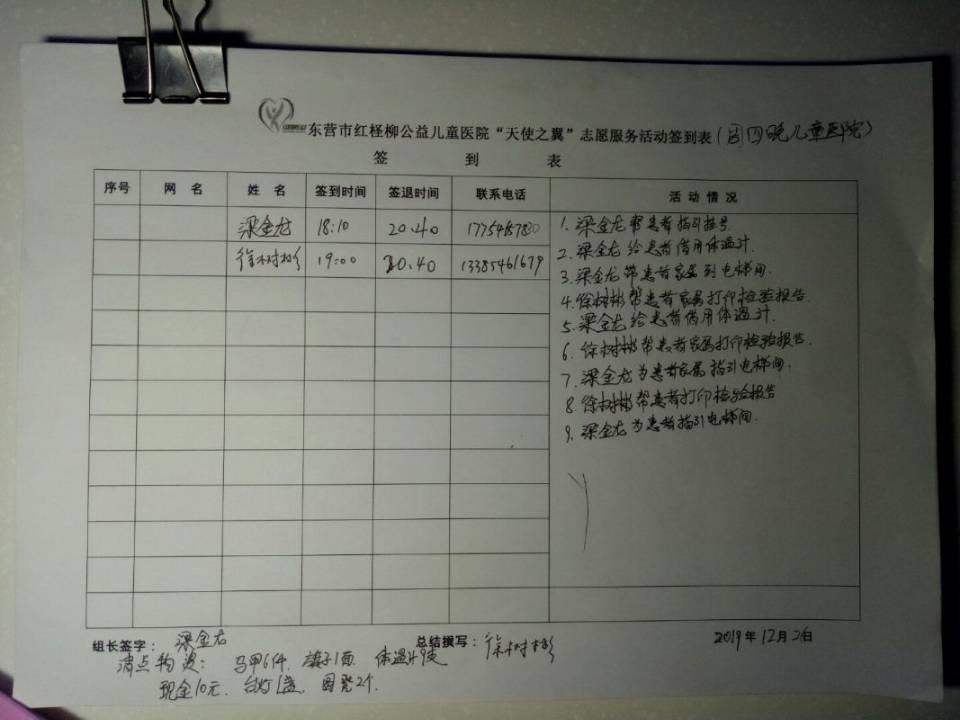 东营市红柽柳公益儿童医院“天使之翼”志愿服务活动签到表(周四晚儿童医院)
签 到 表
序号 网 名 姓 名 签到时间 签退时间 联系电话 活 动 情 况
梁金龙 18:10 20.40
徐树彬 19:00 20.40 13385461679
1. 梁金龙帮患者指引挂号.
2. 梁金龙给患者借用体温计.
3. 梁金龙带患者家属到电梯间.
4. 徐树彬帮患者家属打印检验报告.
5. 梁金龙给患者借用体温计.
6. 徐树彬帮患者家属打印检验报告.
7. 梁金龙为患者家属指引电梯间.
8. 徐树彬帮患者打印检验报告
9. 梁金龙为患者指引电梯间.
组长签字： 梁金龙 总结撰写： 徐树彬 2019年12月26日
清点物资： 马甲6件. 旗子1面. 体温计9支
现金10元. 台灯1盏. 图凳2个.